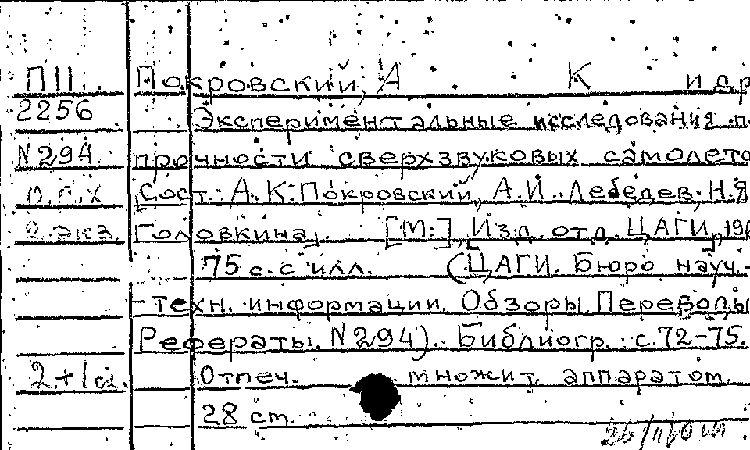 ПП Покровский, А К и др
2256 Экспериментальные исследования п
N294 прочности сверхзвуковых самолето
п.г.х Сост. А.К. Покровский, А.И. Лебедев, Н.Я
2. экз Головкина. [М.], Изд. отд. ЦАГИ, 196
75 с. с илл. (ЦАГИ. Бюро науч.-
техн. информации. Обзоры. Переводы
Рефераты. N294). Библиогр.: с. 72-75.
2+1 Отпеч. множит. аппаратом
28 см.